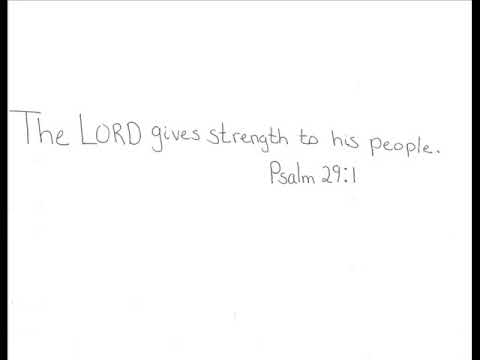 The LORD gives strength to his people.
Psalm 29:1